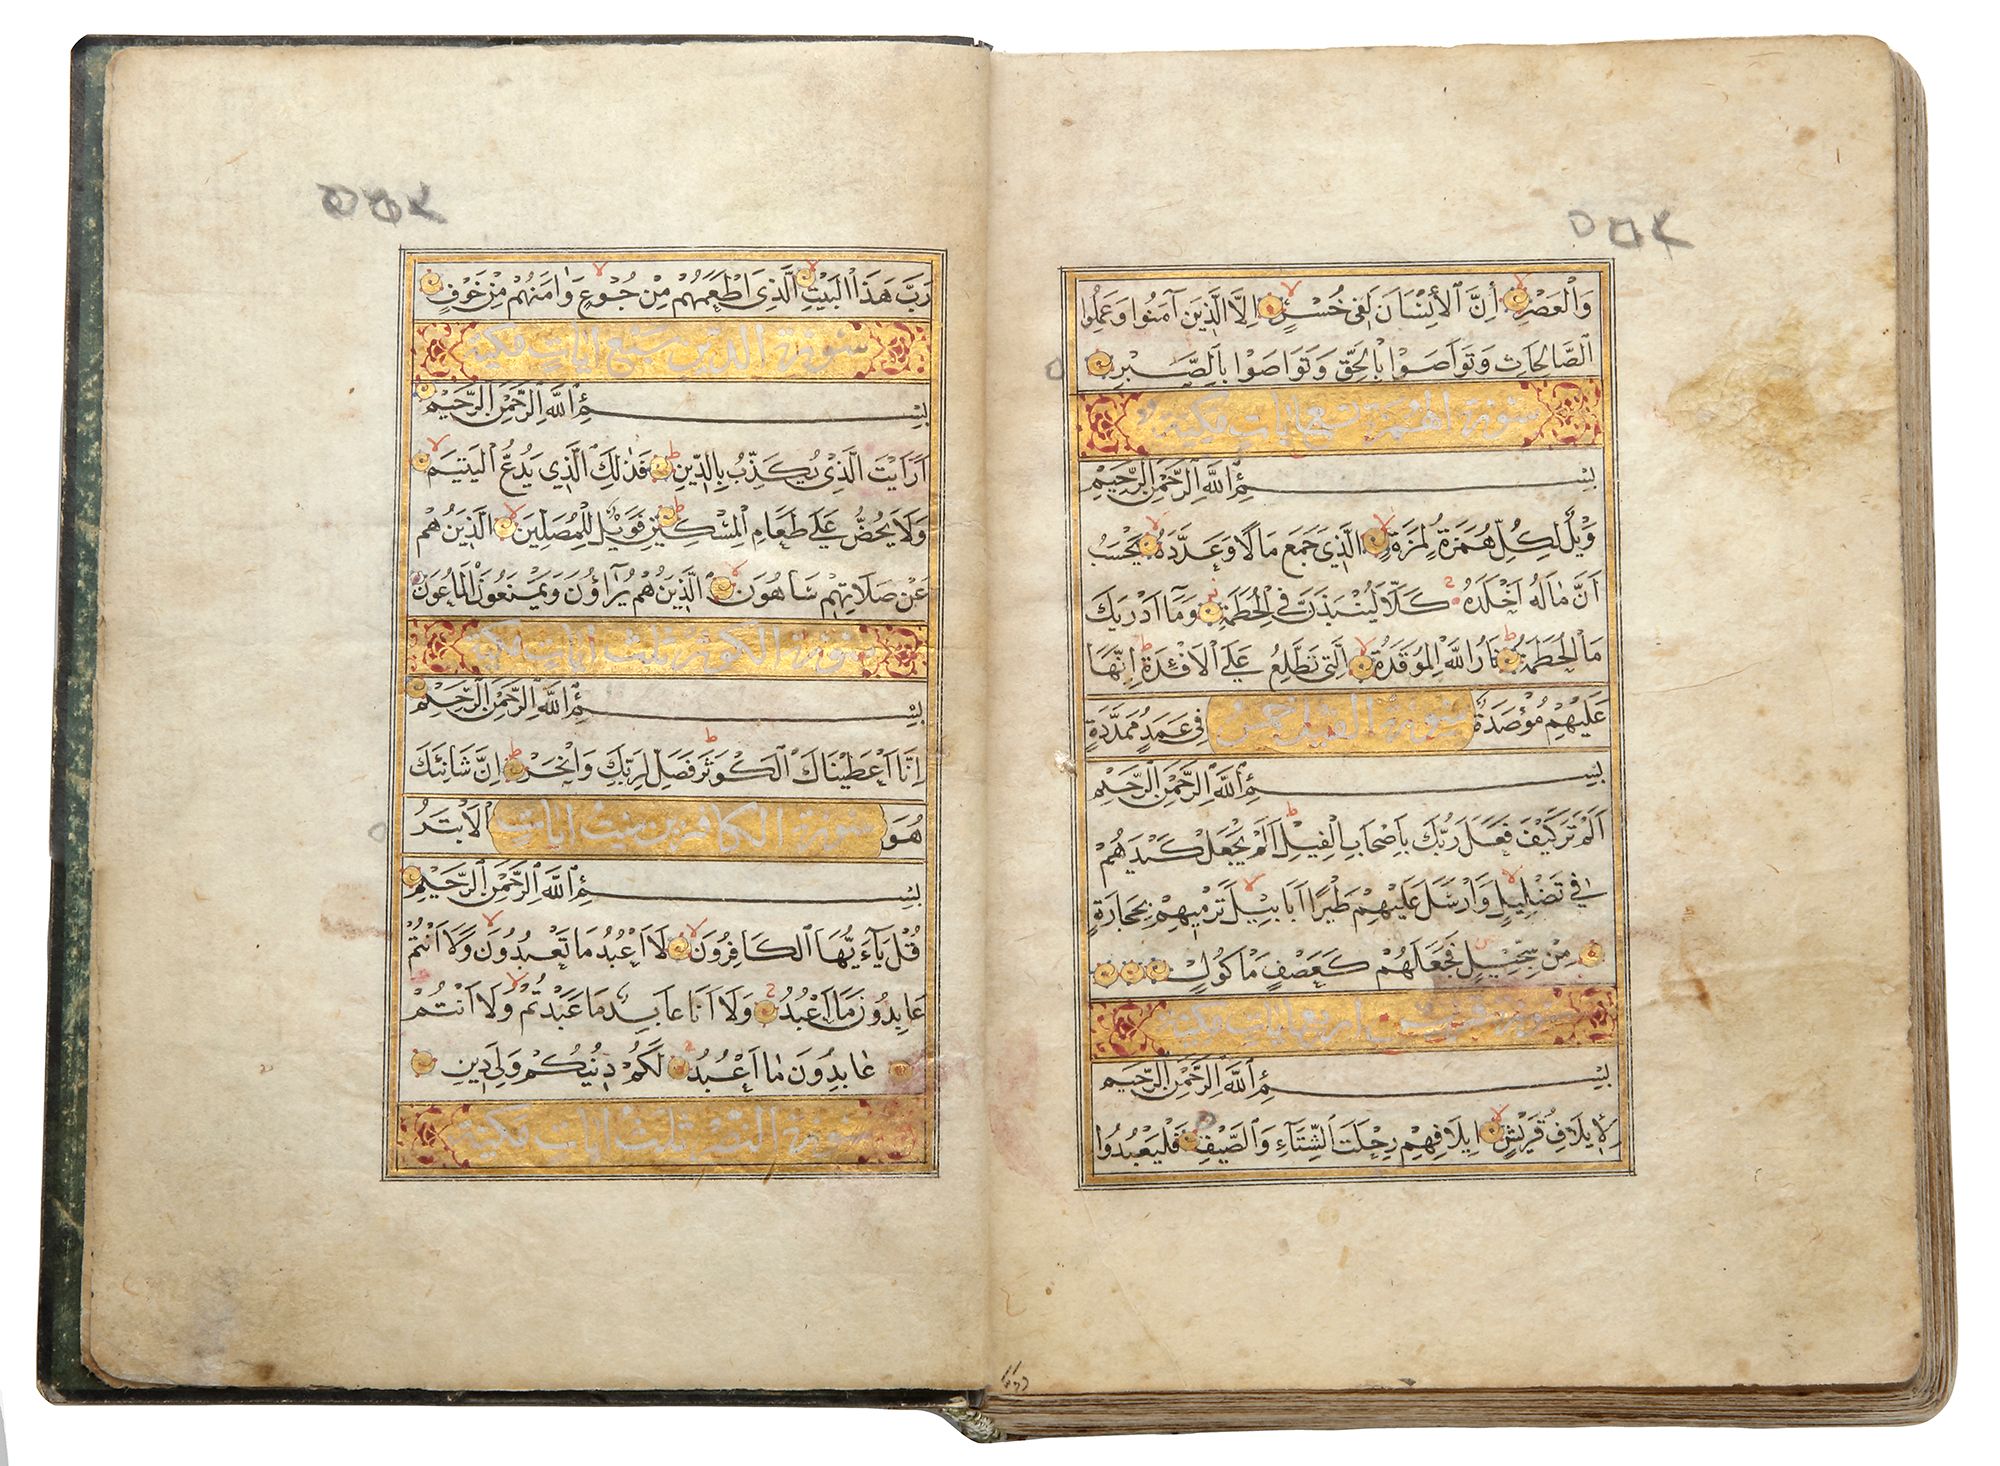 وَالْعَصْرِ أِنَّ الْأِنْسَانَ لَفِي خُسْرٍ اِلَّا الَّذِينَ آمَنُوا وَعَمِلُوا
الصَّالِحَاتِ وَتَوَاصَوْا بِالْحَقِّ وَتَوَاصَوْا بِالصَّبْرِ
سورة الهمزة تسع ايات مكية
بِسْمِ اللَّهِ الرَّحْمٰنِ الرَّحِيمِ
وَيْلٌ لِكُلِّ هُمَزَةٍ لُمَزَةٍ الَّذِي جَمَعَ مَالًا وَعَدَّدَهُ يَحْسَبُ
اَنَّ مَالَهُ اَخْلَدَهُ كَلَّا لَيُنْبَذَنَّ فِي الْحُطَمَةِ وَمَا اَدْرٰيكَ
مَا الْحُطَمَةُ نَارُ اللَّهِ الْمُوقَدَةُ الَّتِي تَطَّلِعُ عَلَى الْاَفْئِدَةِ اِنَّهَا
عَلَيْهِمْ مُؤْصَدَةٌ سورة الفيل خمس فِي عَمَدٍ مُمَدَّدَةٍ
بِسْمِ اللَّهِ الرَّحْمٰنِ الرَّحِيمِ
اَلَمْ تَرَ كَيْفَ فَعَلَ رَبُّكَ بِاَصْحَابِ الْفِيلِ اَلَمْ يَجْعَلْ كَيْدَهُمْ
فِي تَضْلِيلٍ وَاَرْسَلَ عَلَيْهِمْ طَيْرًا اَبَابِيلَ تَرْمِيهِمْ بِحِجَارَةٍ
مِنْ سِجِّيلٍ فَجَعَلَهُمْ كَعَصْفٍ مَاْكُولٍ
سورة قريش اربع ايات مكية
بِسْمِ اللَّهِ الرَّحْمٰنِ الرَّحِيمِ
لِاِيلَافِ قُرَيْشٍ اِيلَافِهِمْ رِحْلَتَ الشِّتَآءِ وَالصَّيْفِ فَلْيَعْبُدُوا
رَبَّ هَذَا الْبَيْتِ الَّذِي اَطْعَمَهُمْ مِنْ جُوعٍ وَاٰمَنَهُمْ مِنْ خَوْفٍ
سورة الدين سبع ايات مكية
بِسْمِ اللَّهِ الرَّحْمٰنِ الرَّحِيمِ
اَرَاَيْتَ الَّذِي يُكَذِّبُ بِالدِّينِ فَذٰلِكَ الَّذِي يَدُعُّ الْيَتِيمَ
وَلَا يَحُضُّ عَلَى طَعَامِ الْمِسْكِينِ فَوَيْلٌ لِلْمُصَلِّينَ الَّذِينَ هُمْ
عَنْ صَلَاتِهِمْ سَاهُونَ الَّذِينَ هُمْ يُرَآؤُنَ وَيَمْنَعُونَ الْمَاعُونَ
سورة الكوثر ثلث ايات مكية
بِسْمِ اللَّهِ الرَّحْمٰنِ الرَّحِيمِ
اِنَّا اَعْطَيْنَاكَ الْكَوْثَرَ فَصَلِّ لِرَبِّكَ وَانْحَرْ اِنَّ شَانِئَكَ
هُوَ سورة الكافرين ست ايات الْاَبْتَرُ
بِسْمِ اللَّهِ الرَّحْمٰنِ الرَّحِيمِ
قُلْ يَآءَيُّهَا الْكَافِرُونَ لَا اَعْبُدُ مَا تَعْبُدُونَ وَلَا اَنْتُمْ
عَابِدُونَ مَا اَعْبُدُ وَلَا اَنَا عَابِدٌ مَا عَبَدْتُمْ وَلَا اَنْتُمْ
عَابِدُونَ مَا اَعْبُدُ لَكُمْ دِينُكُمْ وَلِيَ دِينِ
سورة النصر ثلث ايات مكية